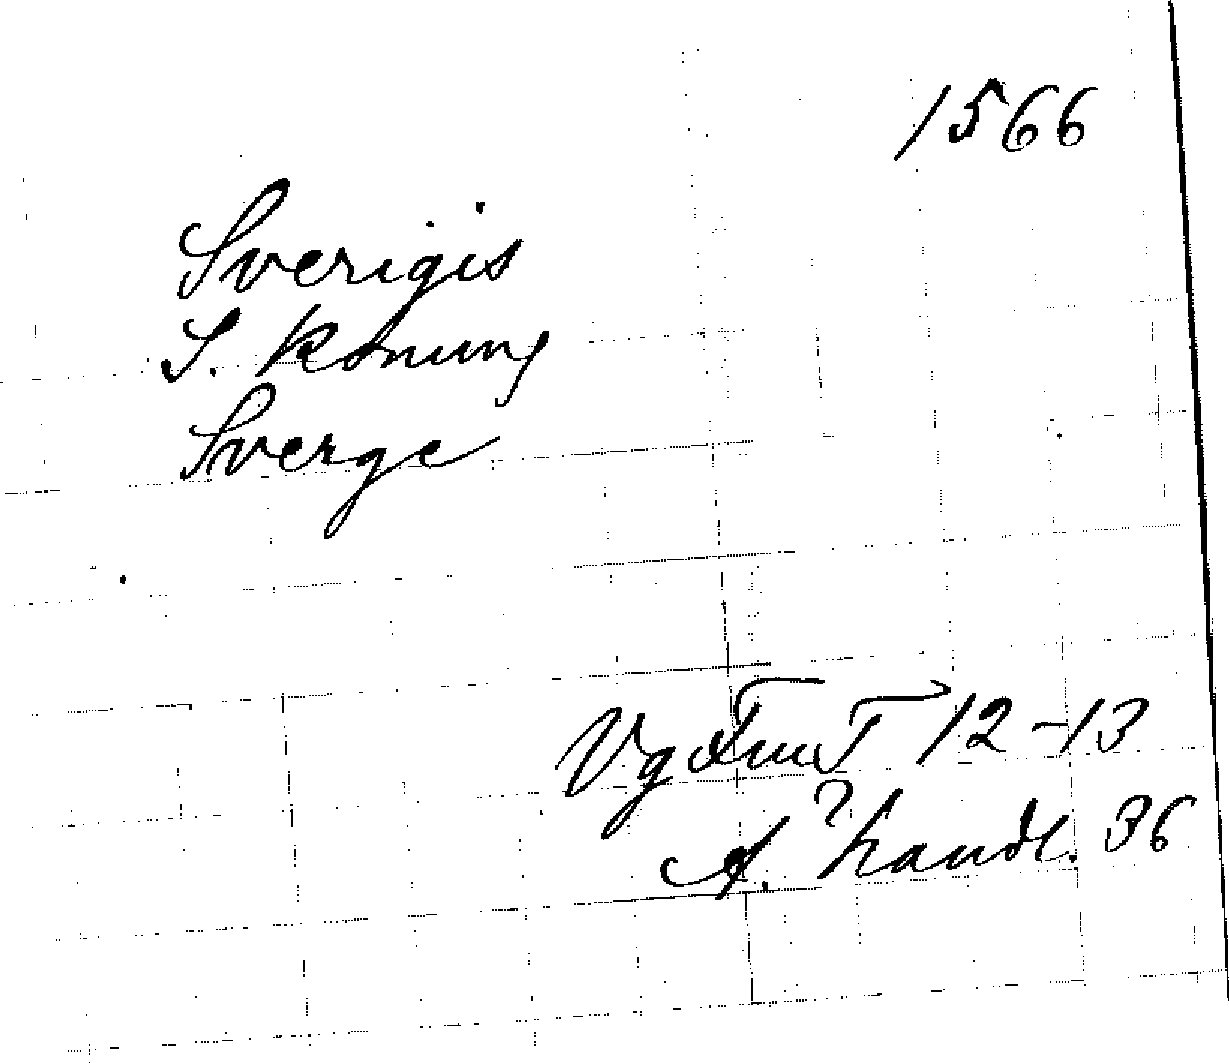 1566
Sverigis
S. konung
Sverge
VgFmT 12-13
A. handl. 36